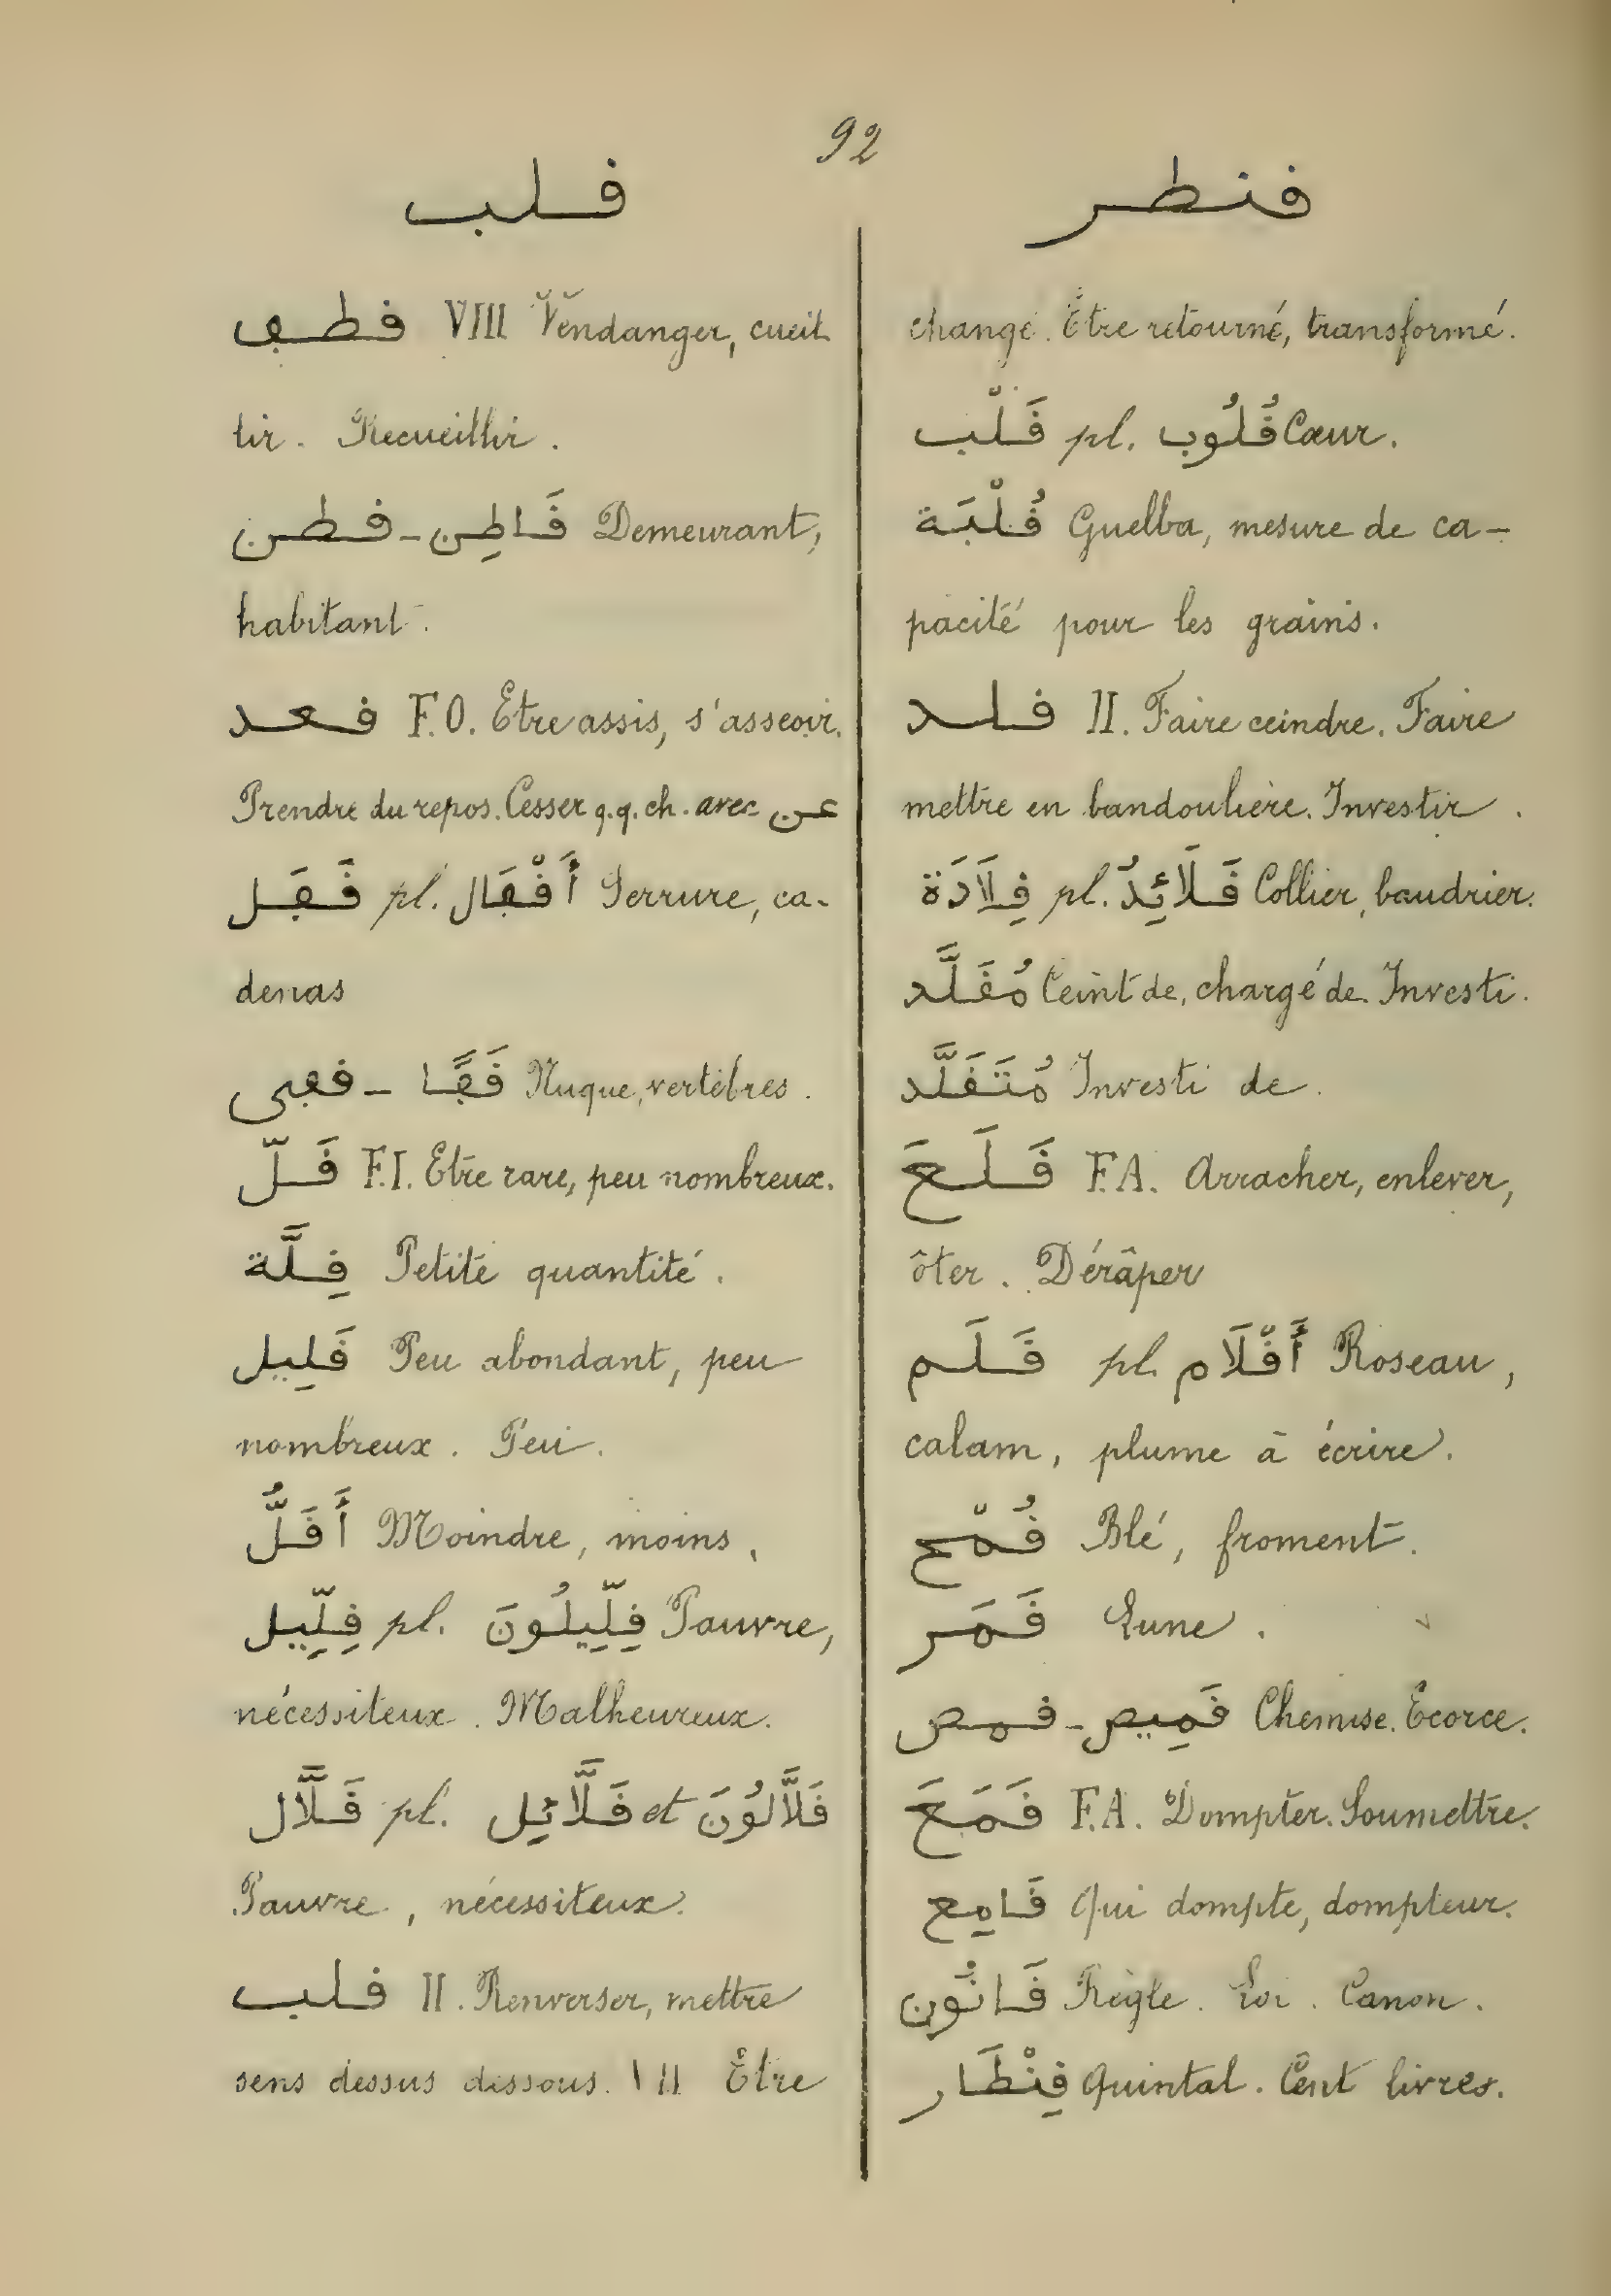 92
قلب
قنطر
قطف VIII Vendanger, cueil
lir. Recueillir.
قطن - قَاطِن Demeurant,
habitant.
قعد F.O. Etre assis, s'asseoir.
Prendre du repos. Cesser q.q.ch. avec عن
قَفَل pl. أَقْفَال Serrure, ca-
denas
قفى - قَفًا Nuque, vertèbres.
قَلّ F.I. Etre rare, peu nombreux.
قِلَّة Petite quantité.
قَلِيل Peu abondant, peu
nombreux. Peu.
أَقَلُّ Moindre, moins.
قِلِّيل pl. قِلِّيلُونَ Pauvre,
nécessiteux. Malheureux.
قَلَّال pl. قَلَّائِل et قَلَّالُونَ
Pauvre, nécessiteux.
قلب II. Renverser, mettre
sens dessus dessous. VII Être
changé. Être retourné, transformé.
قَلْب pl. قُلُوب Cœur.
قُلْبَة Guelba, mesure de ca-
pacité pour les grains.
قلد II. Faire ceindre. Faire
mettre en bandoulière. Investir.
قِلَادَة pl. قَلَائِدُ Collier, baudrier.
مُقَلَّد Ceint de, chargé de. Investi.
مُتَقَلَّد Investi de.
قَلَعَ F.A. Arracher, enlever,
ôter. Dérâper
قَلَم pl. أَقْلَام Roseau,
calam, plume à écrire.
قُمْح Blé, froment.
قَمَر Lune.
قمص - قَمِيص Chemise. Ecorce.
قَمَعَ F.A. Dompter. Soumettre.
قَامِع Qui dompte, dompteur.
قَانُون Règle. Loi. Canon.
قِنْطَار Quintal. Cent livres.